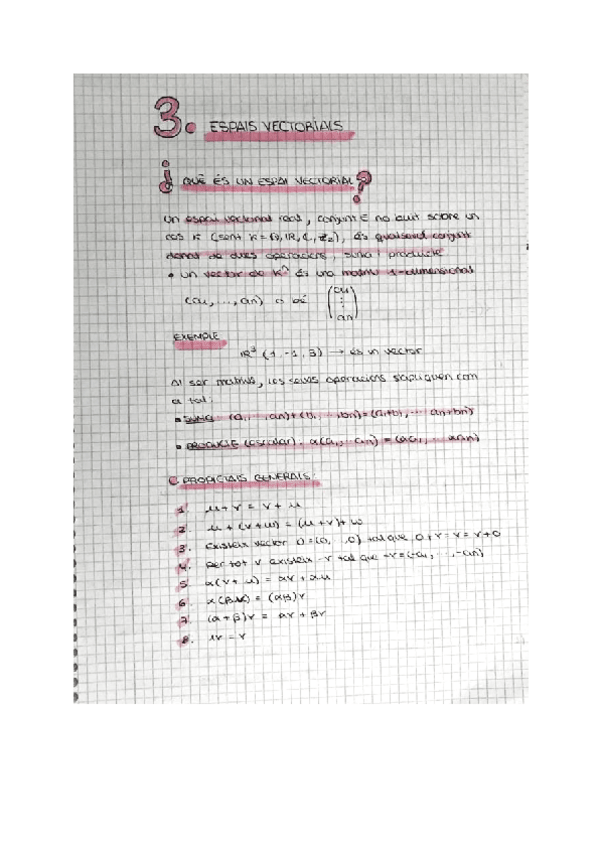 3. ESPAIS VECTORIALS
¿QUÈ ÉS UN ESPAI VECTORIAL?
Un espai vectorial real, conjunt E no buit sobre un
cos K (sent K = Q, IR, C, Z₂), és qualsevol conjunt
donat de dues operacions, suma i producte
• un vector de Kⁿ és una matriu 1-dimensional
(a₁, ..., an) o bé (a₁ ⋮ an)
EXEMPLE
IR³ (1, -1, 3) → és un vector
Al ser matrius, les seves operacions s'apliquen com
a tal:
• SUMA (a₁, ..., an) + (b₁, ..., bn) = (a₁+b₁, ... an+bn)
• PRODUCTE (escalar): α(a₁, ... an) = (αa₁, ... αan)
GENERALS:
1. u + v = v + u
2. u + (v+w) = (u+v) + w
3. Existeix vector 0 = (0, ..., 0) tal que 0 + v = v = v + 0
4. Per tot v existeix -v tal que -v = (-a₁, ..., -an)
5. α(v + u) = αv + αu
6. α(βv) = (αβ)v
7. (α + β)v = αv + βv
8. 1v = v